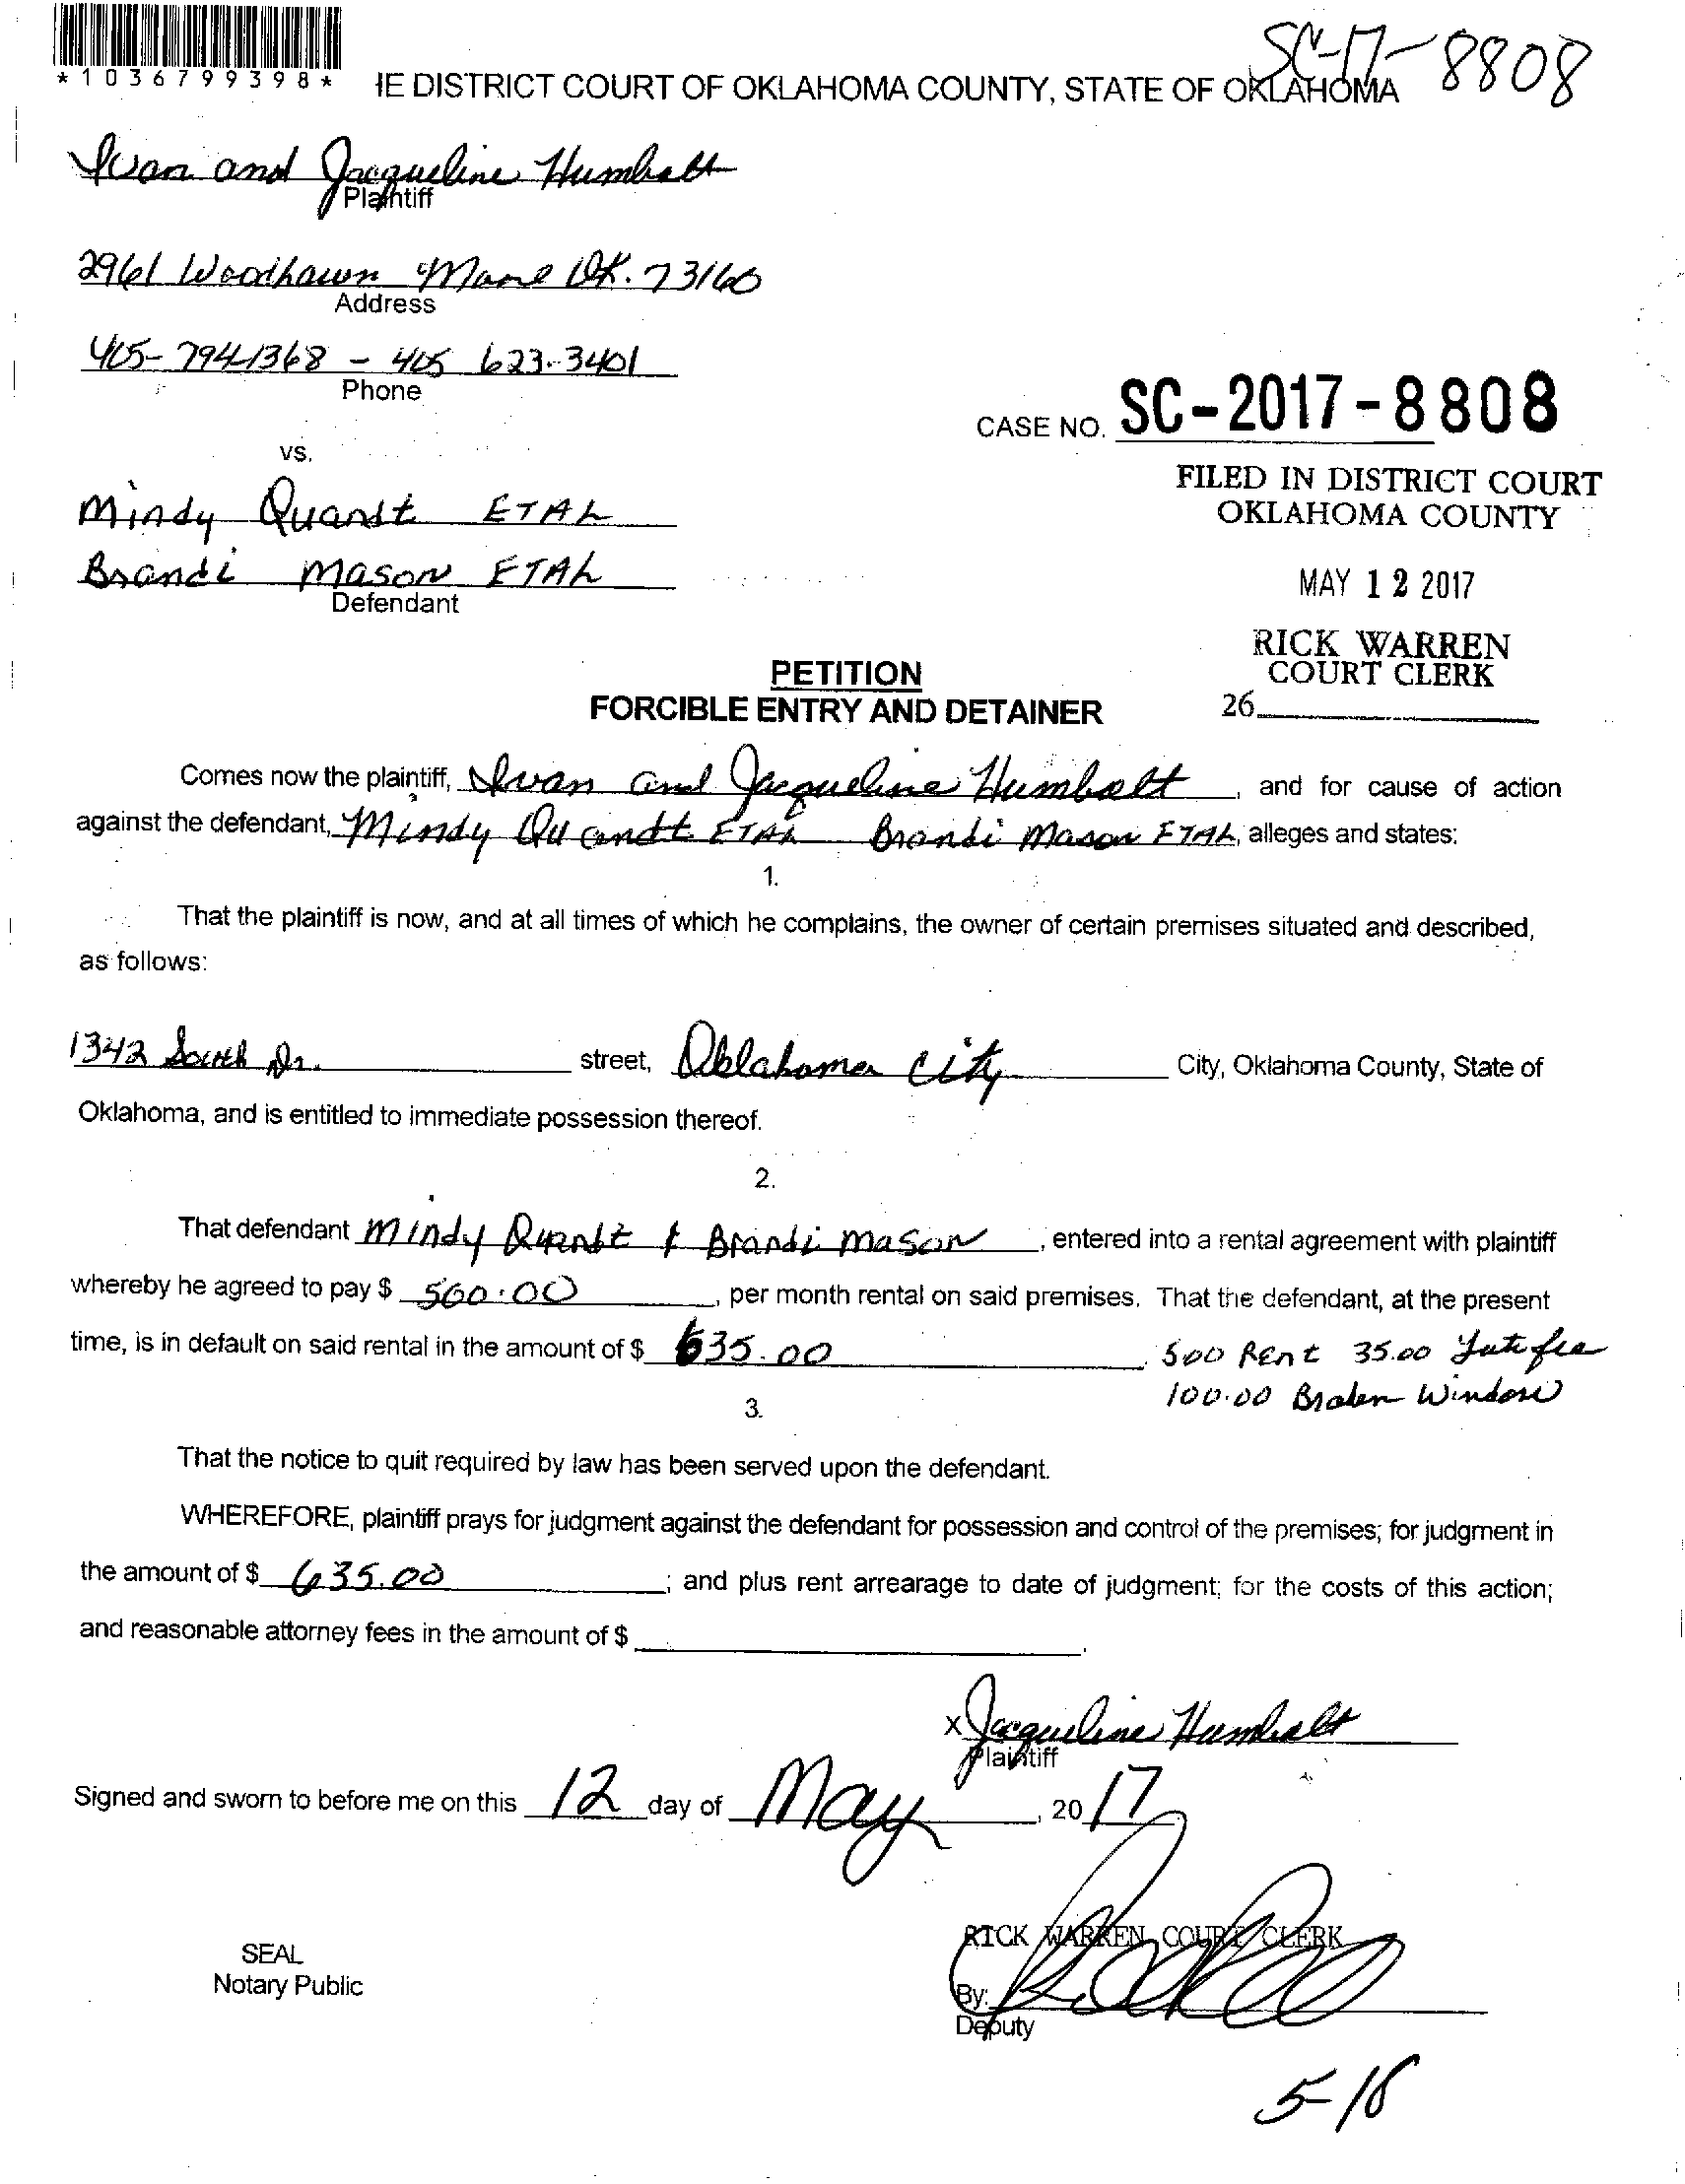 SC-17-8808
*1036799398*
HE DISTRICT COURT OF OKLAHOMA COUNTY, STATE OF OKLAHOMA
Ivan and Jacqueline Humbolt
Plaintiff
2961 Woodhawn Moore Ok. 73160
Address
405-794-1368 - 405 623-3401
Phone
CASE NO. SC-2017-8808
vs.
FILED IN DISTRICT COURT
OKLAHOMA COUNTY
Mindy Quandt ETAL
Brandi Mason ETAL
Defendant
MAY 12 2017
RICK WARREN
COURT CLERK
26
PETITION
FORCIBLE ENTRY AND DETAINER
Comes now the plaintiff, Ivan and Jacqueline Humbolt, and for cause of action
against the defendant, Mindy Quandt ETAL Brandi Mason ETAL, alleges and states:
1.
That the plaintiff is now, and at all times of which he complains, the owner of certain premises situated and described,
as follows:
1342 South Dr. street, Oklahoma City City, Oklahoma County, State of
Oklahoma, and is entitled to immediate possession thereof.
2.
That defendant Mindy Quandt & Brandi Mason, entered into a rental agreement with plaintiff
whereby he agreed to pay $ 500.00, per month rental on said premises. That the defendant, at the present
time, is in default on said rental in the amount of $ 635.00. 500 Rent 35.00 Late fee
100.00 Broken Window
3.
That the notice to quit required by law has been served upon the defendant.
WHEREFORE, plaintiff prays for judgment against the defendant for possession and control of the premises; for judgment in
the amount of $ 635.00; and plus rent arrearage to date of judgment; for the costs of this action;
and reasonable attorney fees in the amount of $
x Jacqueline Humbolt
Plaintiff
Signed and sworn to before me on this 12 day of May, 20 17
RICK WARREN COURT CLERK
SEAL
Notary Public
By:
Deputy
5-18